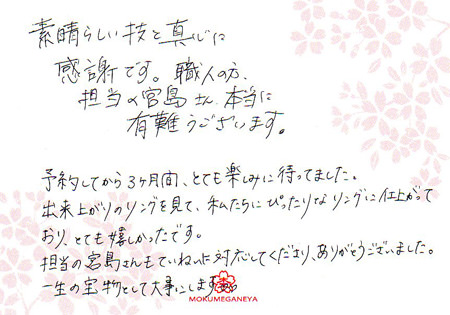 素晴らしい技と真心に
感謝です。職人の方、
担当の宮島さん、本当に
有難うございます。
予約してから3ヶ月間、とても楽しみに待ってました。
出来上がりのリングを見て、私たちにぴったりなリングに仕上がって
おり、とても嬉しかったです。
担当の宮島さんもていねいに対応してくださり、ありがとうございました。
一生の宝物として大事にします。
MOKUMEGANEYA